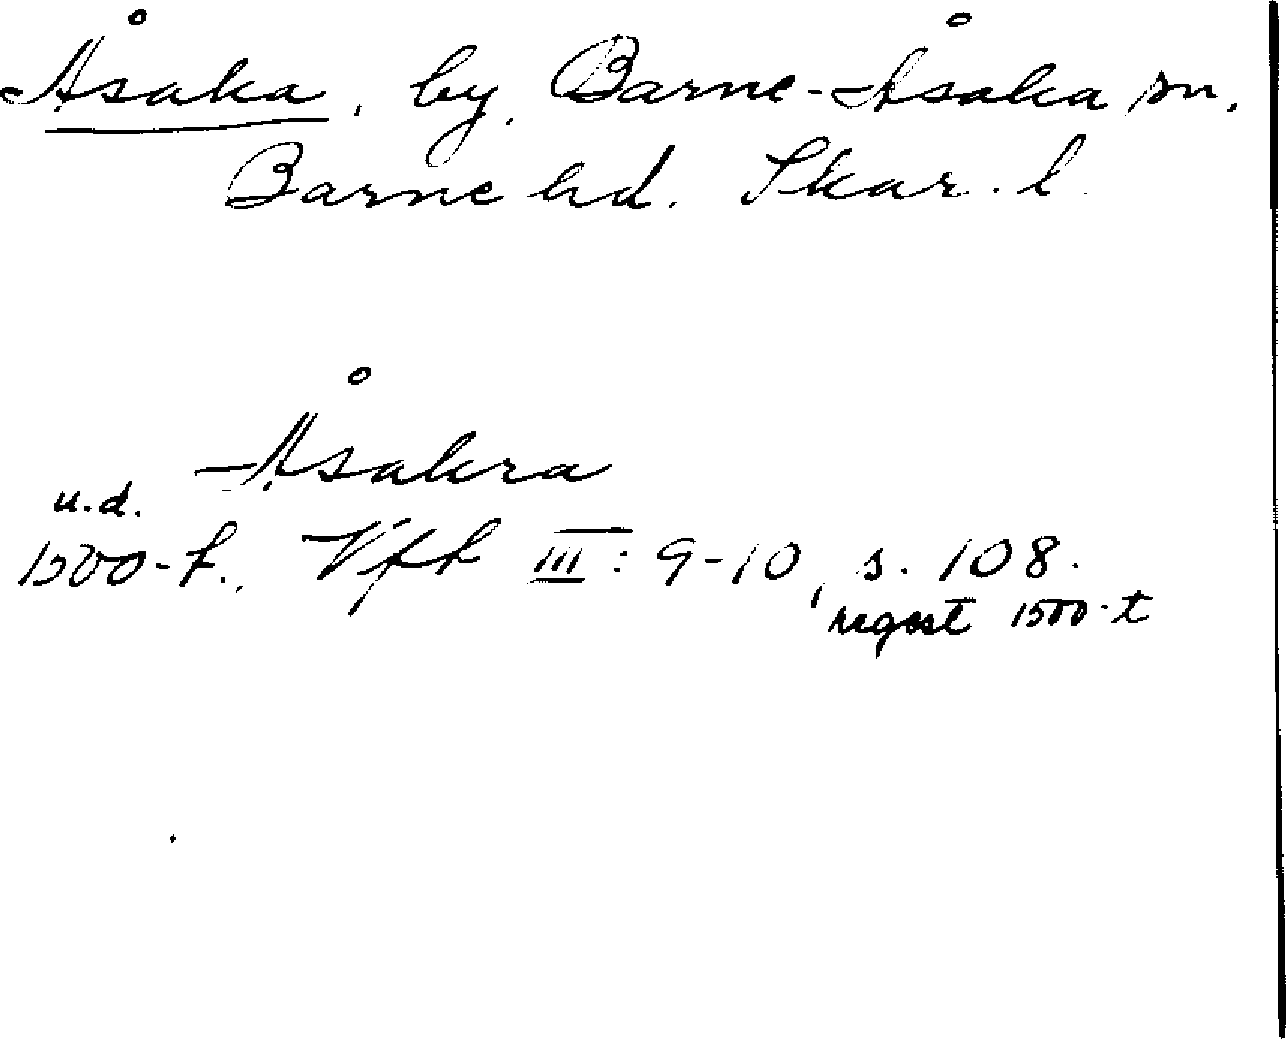 Åsaka, by, Barne-Åsaka sn,
Barne hd. Skar. l.
Åsakra
u.d.
1500-t., Vfh III: 9-10, s. 108.
regest 1500-t